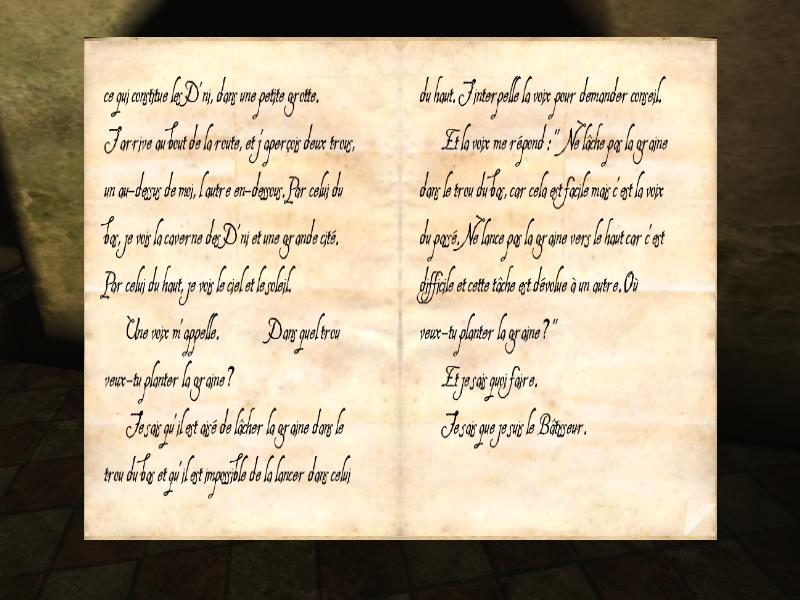 ce qui constitue les D'ni, dans une petite grotte.
J'arrive au bout de la route, et j'aperçois deux trous,
un au-dessus de moi, l'autre en-dessous. Par celui du
bas, je vois la caverne des D'ni et une grande cité.
Par celui du haut, je vois le ciel et le soleil.
Une voix m'appelle. Dans quel trou
veux-tu planter la graine ?
Je sais qu'il est aisé de lâcher la graine dans le
trou du bas et qu'il est impossible de la lancer dans celui
du haut. J'interpelle la voix pour demander conseil.
Et la voix me répond : " Ne lâche pas la graine
dans le trou du bas, car cela est facile mais c'est la voix
du passé. Ne lance pas la graine vers le haut car c'est
difficile et cette tâche est dévolue à un autre. Où
veux-tu planter la graine ? "
Et je sais quoi faire.
Je sais que je suis le Bâtisseur.